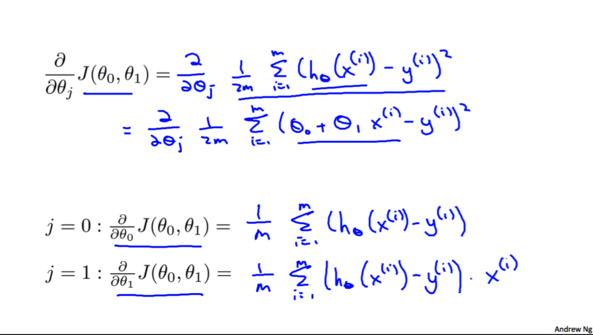 ∂/∂θⱼ J(θ₀, θ₁) = ∂/∂θⱼ 1/2m ∑ᵢ₌₁ᵐ (h_θ(x⁽ⁱ⁾) - y⁽ⁱ⁾)²
= ∂/∂θⱼ 1/2m ∑ᵢ₌₁ᵐ (θ₀ + θ₁ x⁽ⁱ⁾ - y⁽ⁱ⁾)²
j = 0 : ∂/∂θ₀ J(θ₀, θ₁) = 1/m ∑ᵢ₌₁ᵐ (h_θ(x⁽ⁱ⁾) - y⁽ⁱ⁾)
j = 1 : ∂/∂θ₁ J(θ₀, θ₁) = 1/m ∑ᵢ₌₁ᵐ (h_θ(x⁽ⁱ⁾) - y⁽ⁱ⁾) · x⁽ⁱ⁾
Andrew Ng